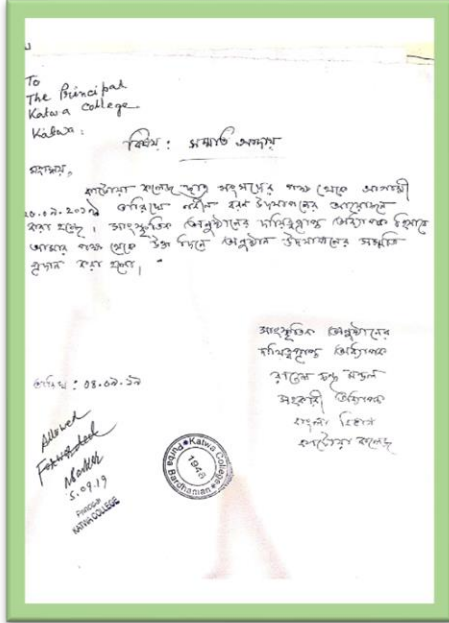 To
The Principal
Katwa College
Katwa
বিষয় : সম্মতি আদায়
মহাশয়,
কাটোয়া কলেজ ছাত্র সংসদের পক্ষ থেকে আগামী
তারিখে নবীন বরণ উদযাপনের আয়োজন
করা হচ্ছে। সাংস্কৃতিক অনুষ্ঠানের দায়িত্বপ্রাপ্ত অধ্যাপক হিসাবে
আমার পক্ষ থেকে উক্ত দিনে অনুষ্ঠান উদযাপনের সম্মতি
প্রদান করা হলো।
সাংস্কৃতিক অনুষ্ঠানের
দায়িত্বপ্রাপ্ত অধ্যাপক
চন্দ্র মন্ডল
সহকারী অধ্যাপক
বাংলা বিভাগ
কাটোয়া কলেজ
তারিখ : 04.09.19
Allowed
Forwarded
5.09.19
KATWA COLLEGE
Katwa College
Purba Bardhaman
1948